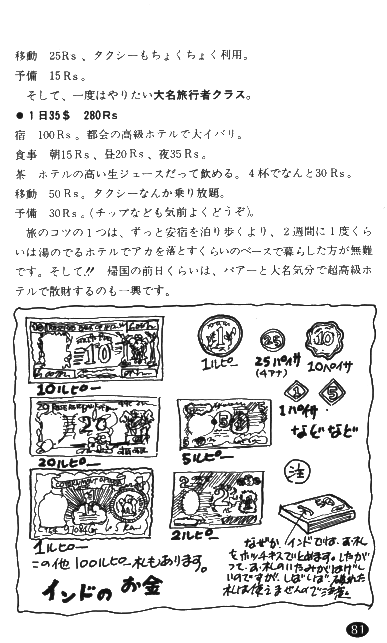 移動　25Rs、タクシーもちょくちょく利用。
予備　15Rs。
　そして、一度はやりたい大名旅行者クラス。
●1日35$　280Rs
宿　100Rs。都会の高級ホテルで大イバリ。
食事　朝15Rs、昼20Rs、夜35Rs。
茶　ホテルの高い生ジュースだって飲める。4杯でなんと30Rs。
移動　50Rs。タクシーなんか乗り放題。
予備　30Rs。(チップなども気前よくどうぞ)。
　旅のコツの1つは、ずっと安宿を泊り歩くより、2週間に1度くら
いは湯のでるホテルでアカを落とすくらいのペースで暮らした方が無難
です。そして!!　帰国の前日くらいは、パアーと大名気分で超高級ホ
テルで散財するのも一興です。
10
10ルピー
1
1ルピー
25
25パイサ
(4アナ)
10
10パイサ
1
5
1パイサ
などなど
20
20ルピー
5ルピー
1
1ルピー
2
2ルピー
注
なぜか インドでは、お札
をホッチキスでとめます。したがっ
て、お札のいたみがはげし
いのですが、しばしば、破れた
札は使えませんのでご注意。
この他 100ルピー札もあります。
インドの お金
81